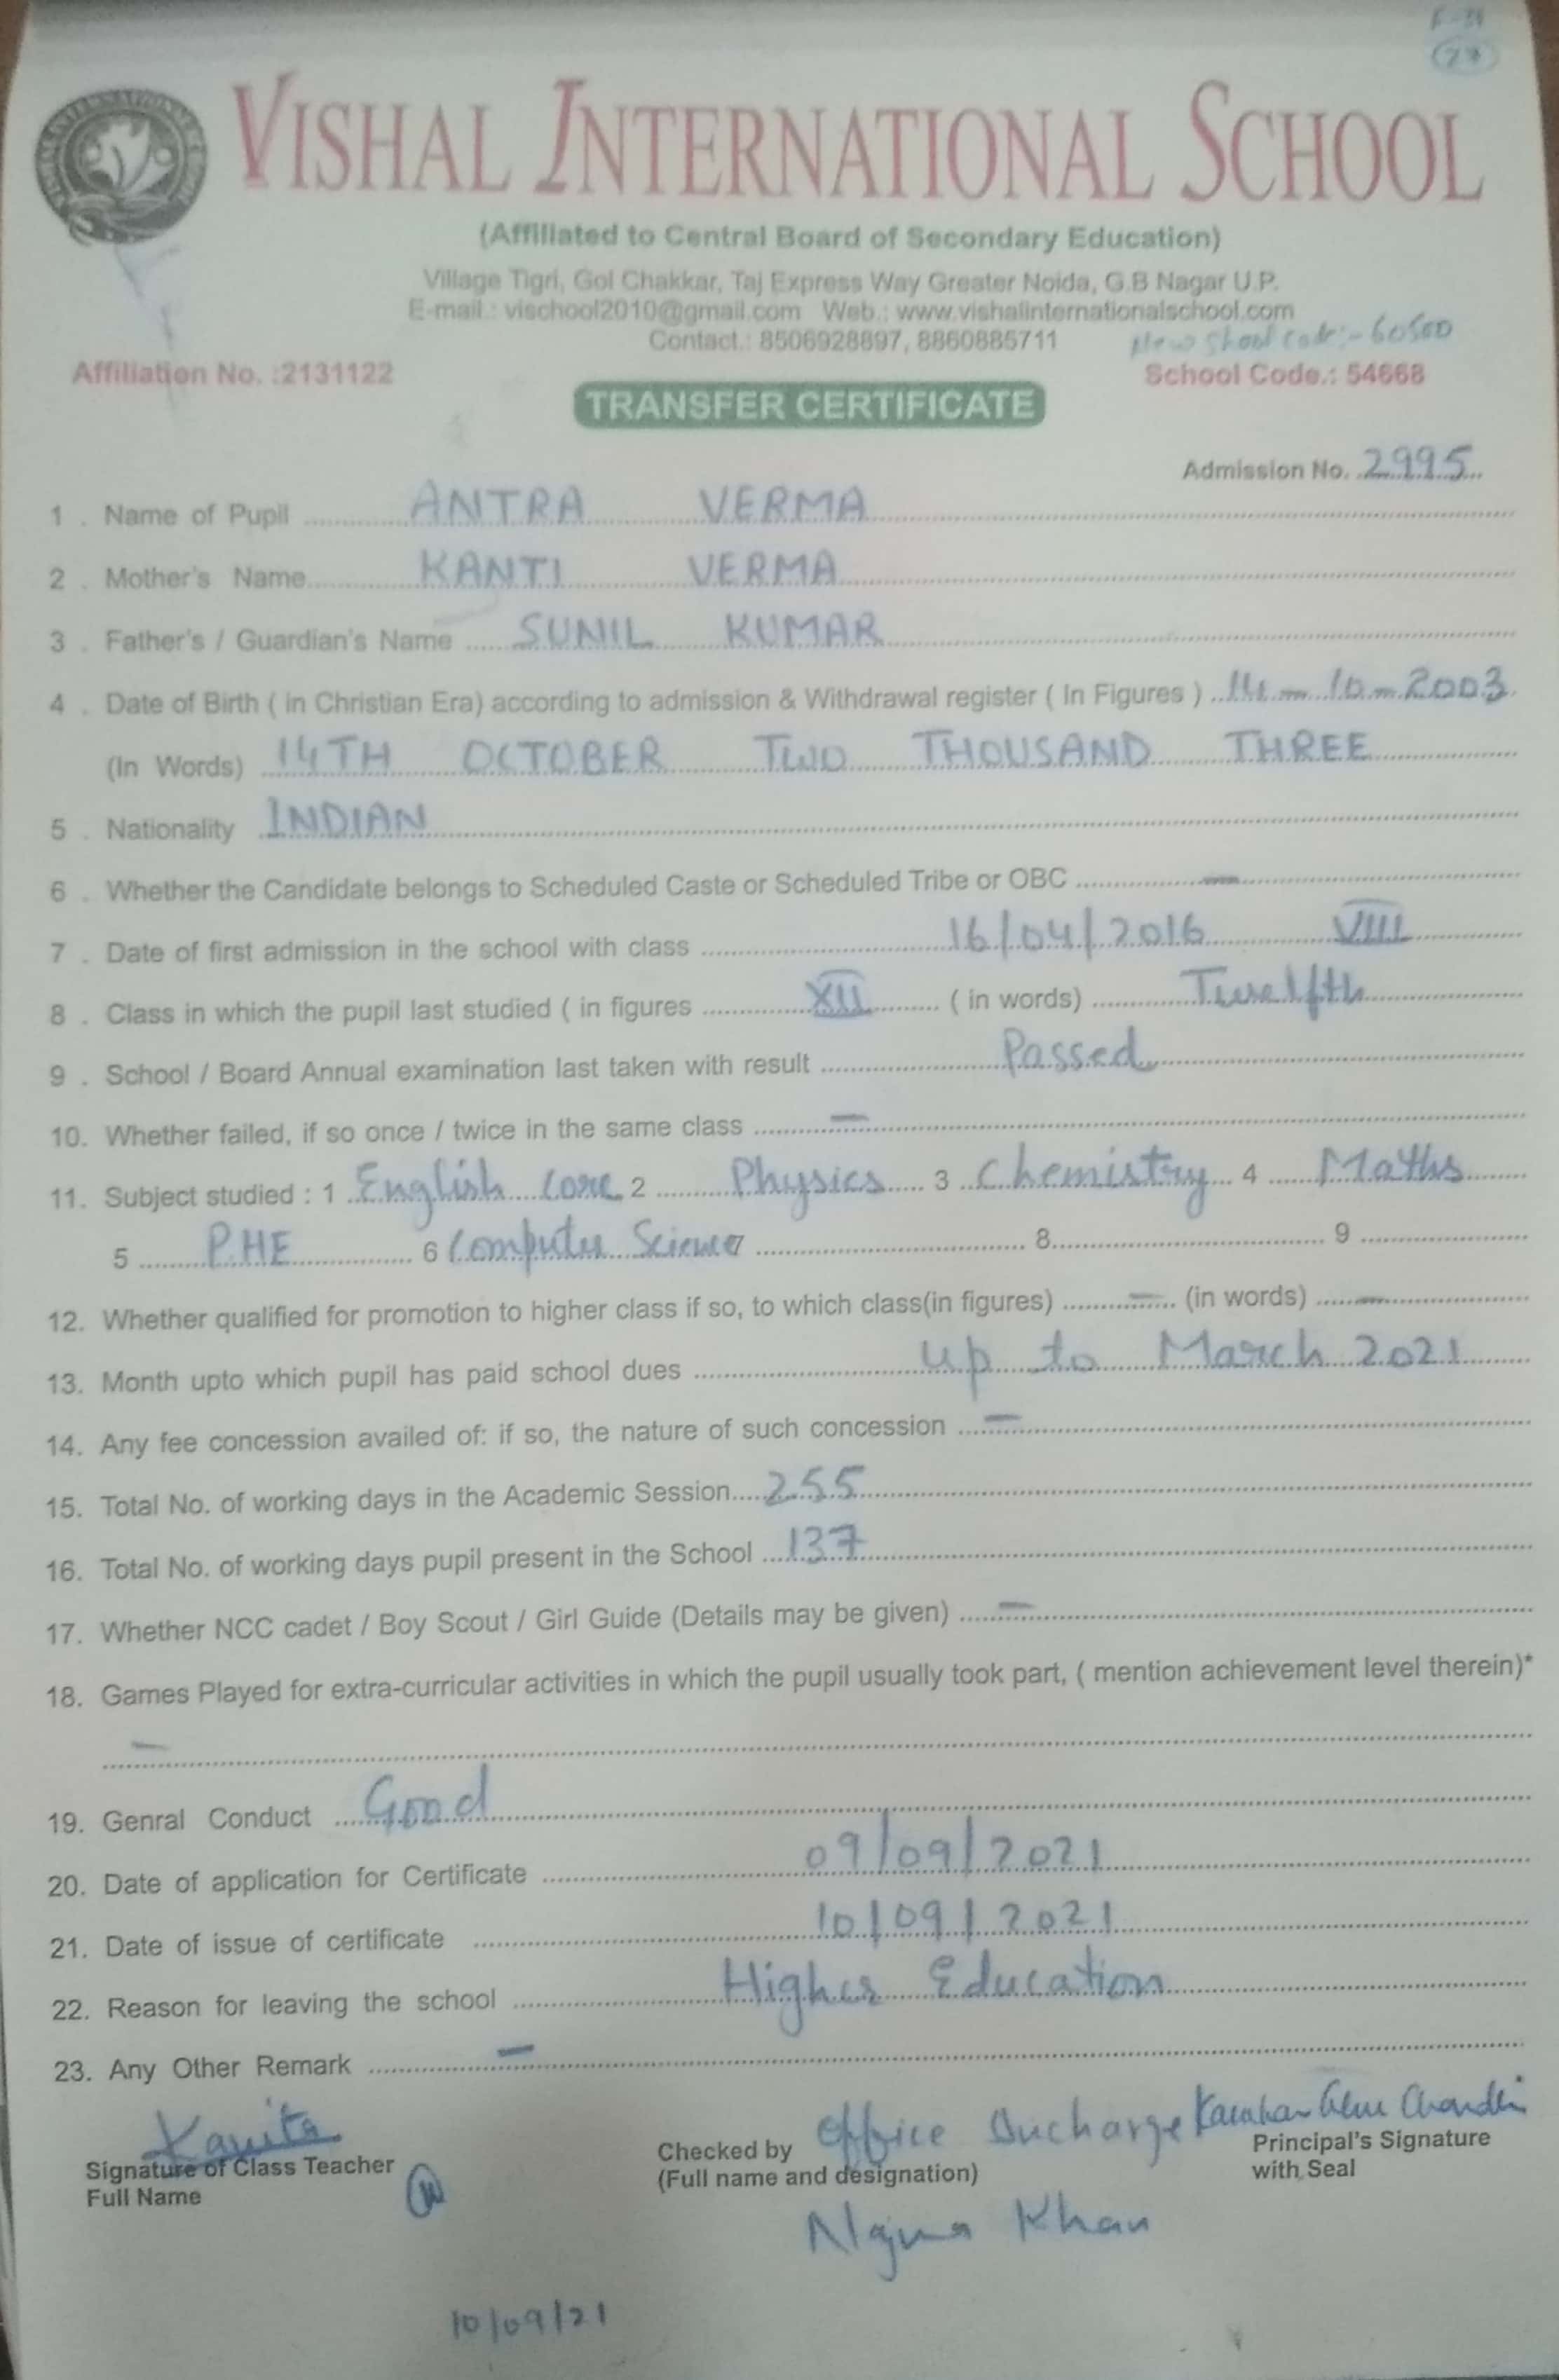 F-31
27
VISHAL INTERNATIONAL SCHOOL
(Affiliated to Central Board of Secondary Education)
Village Tigri, Gol Chakkar, Taj Express Way Greater Noida, G.B Nagar U.P.
E-mail.: vischool2010@gmail.com Web.: www.vishalinternationalschool.com
Contact.: 8506928897, 8860885711
New School Code:- 60500
Affiliation No. :2131122 School Code.: 54668
TRANSFER CERTIFICATE
Admission No. 2995
1 . Name of Pupil ANTRA VERMA
2 . Mother's Name KANTI VERMA
3 . Father's / Guardian's Name SUNIL KUMAR
4 . Date of Birth ( in Christian Era) according to admission & Withdrawal register ( In Figures ) 14 - 10 - 2003
(In Words) 14TH OCTOBER TWO THOUSAND THREE
5 . Nationality INDIAN
6 . Whether the Candidate belongs to Scheduled Caste or Scheduled Tribe or OBC —
7 . Date of first admission in the school with class 16/04/2016 VIII
8 . Class in which the pupil last studied ( in figures XII ( in words) Twelfth
9 . School / Board Annual examination last taken with result Passed
10. Whether failed, if so once / twice in the same class —
11. Subject studied : 1 English Core 2 Physics 3 Chemistry 4 Maths
5 P.HE 6 Computer Science 7 8 9
12. Whether qualified for promotion to higher class if so, to which class(in figures) — (in words) —
13. Month upto which pupil has paid school dues up to March 2021
14. Any fee concession availed of: if so, the nature of such concession —
15. Total No. of working days in the Academic Session 255
16. Total No. of working days pupil present in the School 137
17. Whether NCC cadet / Boy Scout / Girl Guide (Details may be given) —
18. Games Played for extra-curricular activities in which the pupil usually took part, ( mention achievement level therein)*
—
19. Genral Conduct Good
20. Date of application for Certificate 09/09/2021
21. Date of issue of certificate 10/09/2021
22. Reason for leaving the school Higher Education
23. Any Other Remark —
Kavita Office Incharge
Signature of Class Teacher Checked by Principal's Signature
Full Name (Full name and designation) with Seal
Khan
10/09/21